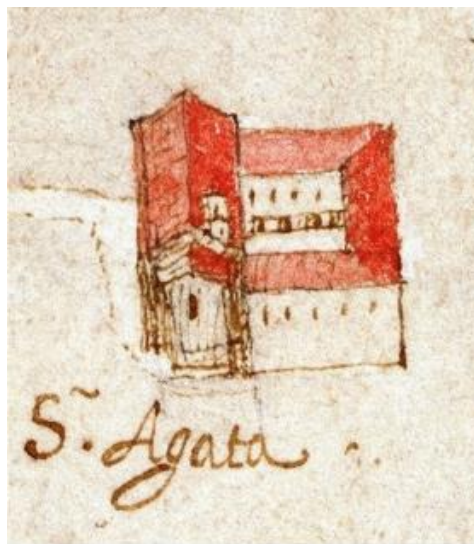 S.~ Agata